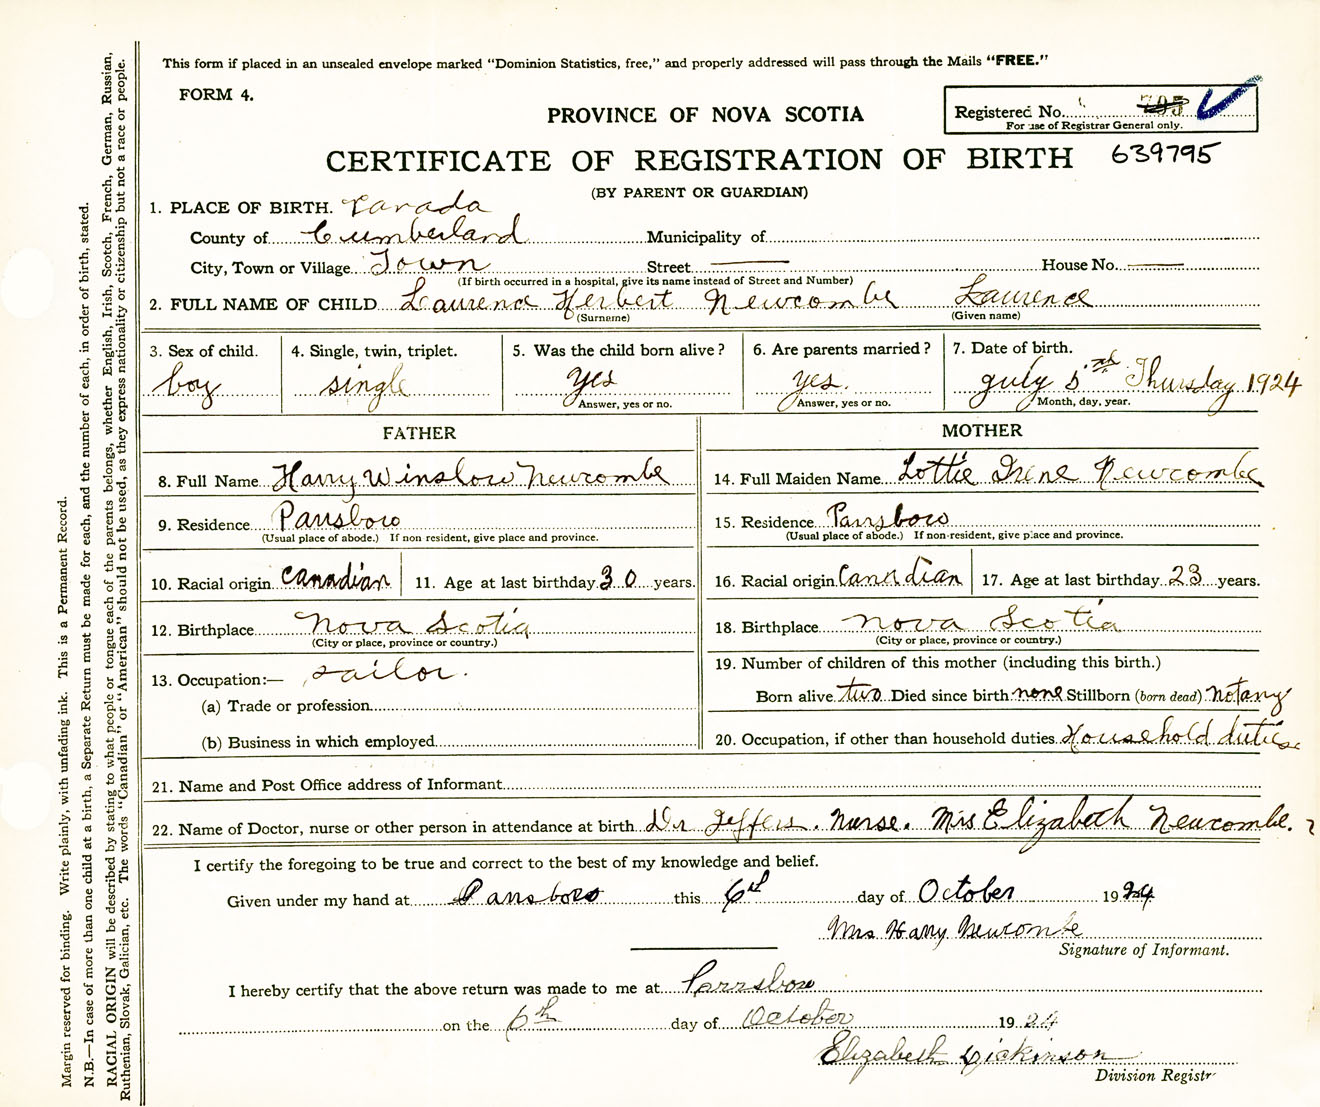 This form if placed in an unsealed envelope marked "Dominion Statistics, free," and properly addressed will pass through the Mails "FREE."
FORM 4.
Registered No. 795
For use of Registrar General only.
PROVINCE OF NOVA SCOTIA
CERTIFICATE OF REGISTRATION OF BIRTH 639795
(BY PARENT OR GUARDIAN)
1. PLACE OF BIRTH. Canada
County of Cumberland Municipality of
City, Town or Village Town Street House No.
(If birth occurred in a hospital, give its name instead of Street and Number)
2. FULL NAME OF CHILD Laurence Herbert Newcombe Laurence
(Surname) (Given name)
3. Sex of child. 4. Single, twin, triplet. 5. Was the child born alive? 6. Are parents married? 7. Date of birth.
boy single yes yes. July 5 Thursday 1924
Answer, yes or no. Answer, yes or no. Month, day, year.
FATHER MOTHER
8. Full Name Harry Winslow Newcombe 14. Full Maiden Name Lottie Irene Newcombe
9. Residence Parrsboro 15. Residence Parrsboro
(Usual place of abode.) If non resident, give place and province. (Usual place of abode.) If non-resident, give place and province.
10. Racial origin Canadian 11. Age at last birthday 30 years. 16. Racial origin Canadian 17. Age at last birthday 23 years.
12. Birthplace Nova Scotia 18. Birthplace Nova Scotia
(City or place, province or country.) (City or place, province or country.)
13. Occupation:— sailor. 19. Number of children of this mother (including this birth.)
(a) Trade or profession Born alive two Died since birth none Stillborn (born dead) not any
(b) Business in which employed 20. Occupation, if other than household duties Household duties
21. Name and Post Office address of Informant
22. Name of Doctor, nurse or other person in attendance at birth Dr Jeffers. Nurse. Mrs Elizabeth Newcombe.
I certify the foregoing to be true and correct to the best of my knowledge and belief.
Given under my hand at Parrsboro this 6th day of October 1924
Mrs Harry Newcombe
Signature of Informant.
I hereby certify that the above return was made to me at Parrsboro
on the 6th day of October 1924
Elizabeth Dickinson
Division Registr
Margin reserved for binding. Write plainly, with unfading ink. This is a Permanent Record.
N.B.—In case of more than one child at a birth, a Separate Return must be made for each, and the number of each, in order of birth, stated.
RACIAL ORIGIN will be described by stating to what people or tongue each of the parents belongs, whether English, Irish, Scotch, French, German, Russian,
Ruthenian, Slovak, Galician, etc. The words "Canadian" or "American" should not be used, as they express nationality or citizenship but not a race or people.